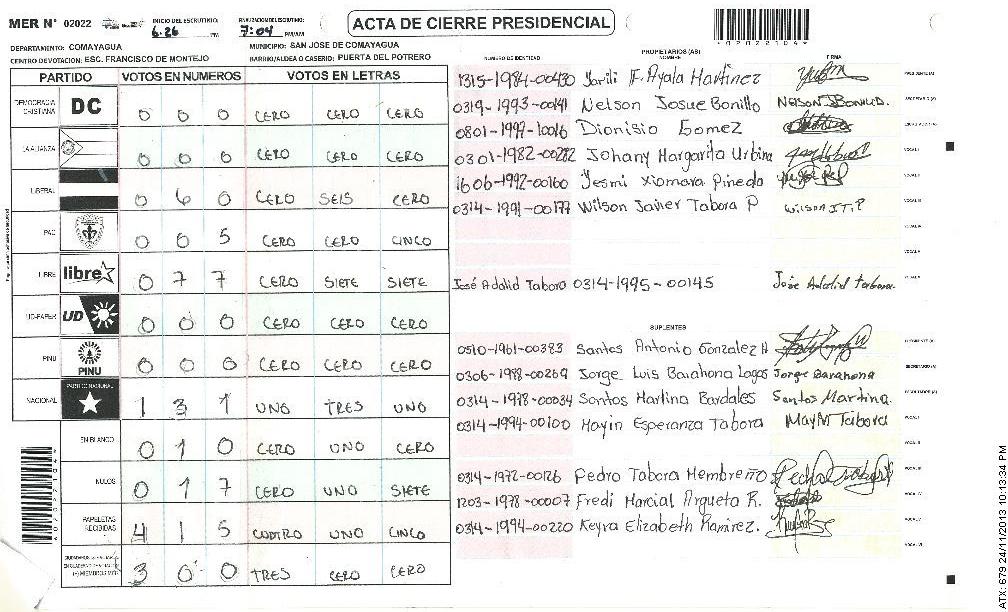 MER N° 02022
INICIO DEL ESCRUTINIO:
6:26 PM
FINALIZACION DEL ESCRUTINIO:
7:04 PM/AM
ACTA DE CIERRE PRESIDENCIAL
02022104
DEPARTAMENTO: COMAYAGUA
MUNICIPIO: SAN JOSE DE COMAYAGUA
CENTRO DE VOTACION: ESC. FRANCISCO DE MONTEJO
BARRIO/ALDEA O CASERIO: PUERTA DEL POTRERO
PARTIDO VOTOS EN NUMEROS VOTOS EN LETRAS
DEMOCRACIA CRISTIANA DC 0 0 0 CERO CERO CERO
LA ALIANZA 0 0 0 CERO CERO CERO
LIBERAL 0 6 0 CERO SEIS CERO
PAC 0 0 5 CERO CERO CINCO
LIBRE libre 0 7 7 CERO SIETE SIETE
UD-FAPER UD 0 0 0 CERO CERO CERO
PINU PINU 0 0 0 CERO CERO CERO
NACIONAL PARTIDO NACIONAL 1 3 1 UNO TRES UNO
EN BLANCO 0 1 0 CERO UNO CERO
NULOS 0 1 7 CERO UNO SIETE
PAPELETAS RECIBIDAS 4 1 5 CUATRO UNO CINCO
3 0 0 TRES CERO CERO
PROPIETARIOS (AS)
NUMERO DE IDENTIDAD NOMBRE FIRMA
1315-1984-00430 Yarili F. Ayala Martinez PRESIDENTE (A)
0319-1993-00141 Nelson Josue Bonillo NELSON J BONILLO. SECRETARIO (A)
0801-1997-10016 Dionisio Gomez ESCRUTADOR (A)
0301-1982-00282 Johany Margarita Urbina VOCAL I
1606-1992-00160 Yesmi Xiomara Pinedo VOCAL II
0314-1991-00177 Wilson Javier Tabora P Wilson J T. P VOCAL III
José Adalid Tabora 0314-1995-00145 José Adalid tabora.
SUPLENTES
0510-1961-00383 Santos Antonio Gonzalez H
0306-1988-00269 Jorge Luis Barahona Lagos Jorge Barahona SECRETARIO (A)
0314-1978-00034 Santos Martina Bardales Santos Martina. ESCRUTADOR (A)
0314-1994-00100 Mayin Esperanza Tabora MayiN Tabora VOCAL I
0314-1972-00126 Pedro Tabora Membreño VOCAL III
1203-1978-00007 Fredi Marcial Argueta R. VOCAL IV
0314-1994-00220 Keyra Elizabeth Ramirez. VOCAL V
VOCAL VI
ATX: 679 24/11/2013 10:13:34 PM